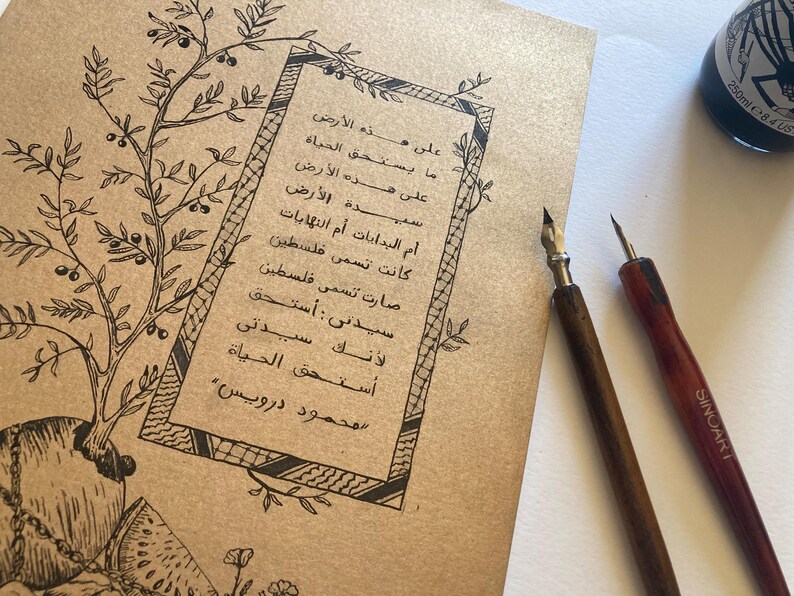 على هذه الأرض
ما يستحق الحياة
على هذه الأرض
سيدة الأرض
أم البدايات أم النهايات
كانت تسمى فلسطين
صارت تسمى فلسطين
سيدتي : أستحق
لأنك سيدتي
أستحق الحياة
"محمود درويس"
SINOART
250ml ℮ 8.4 US